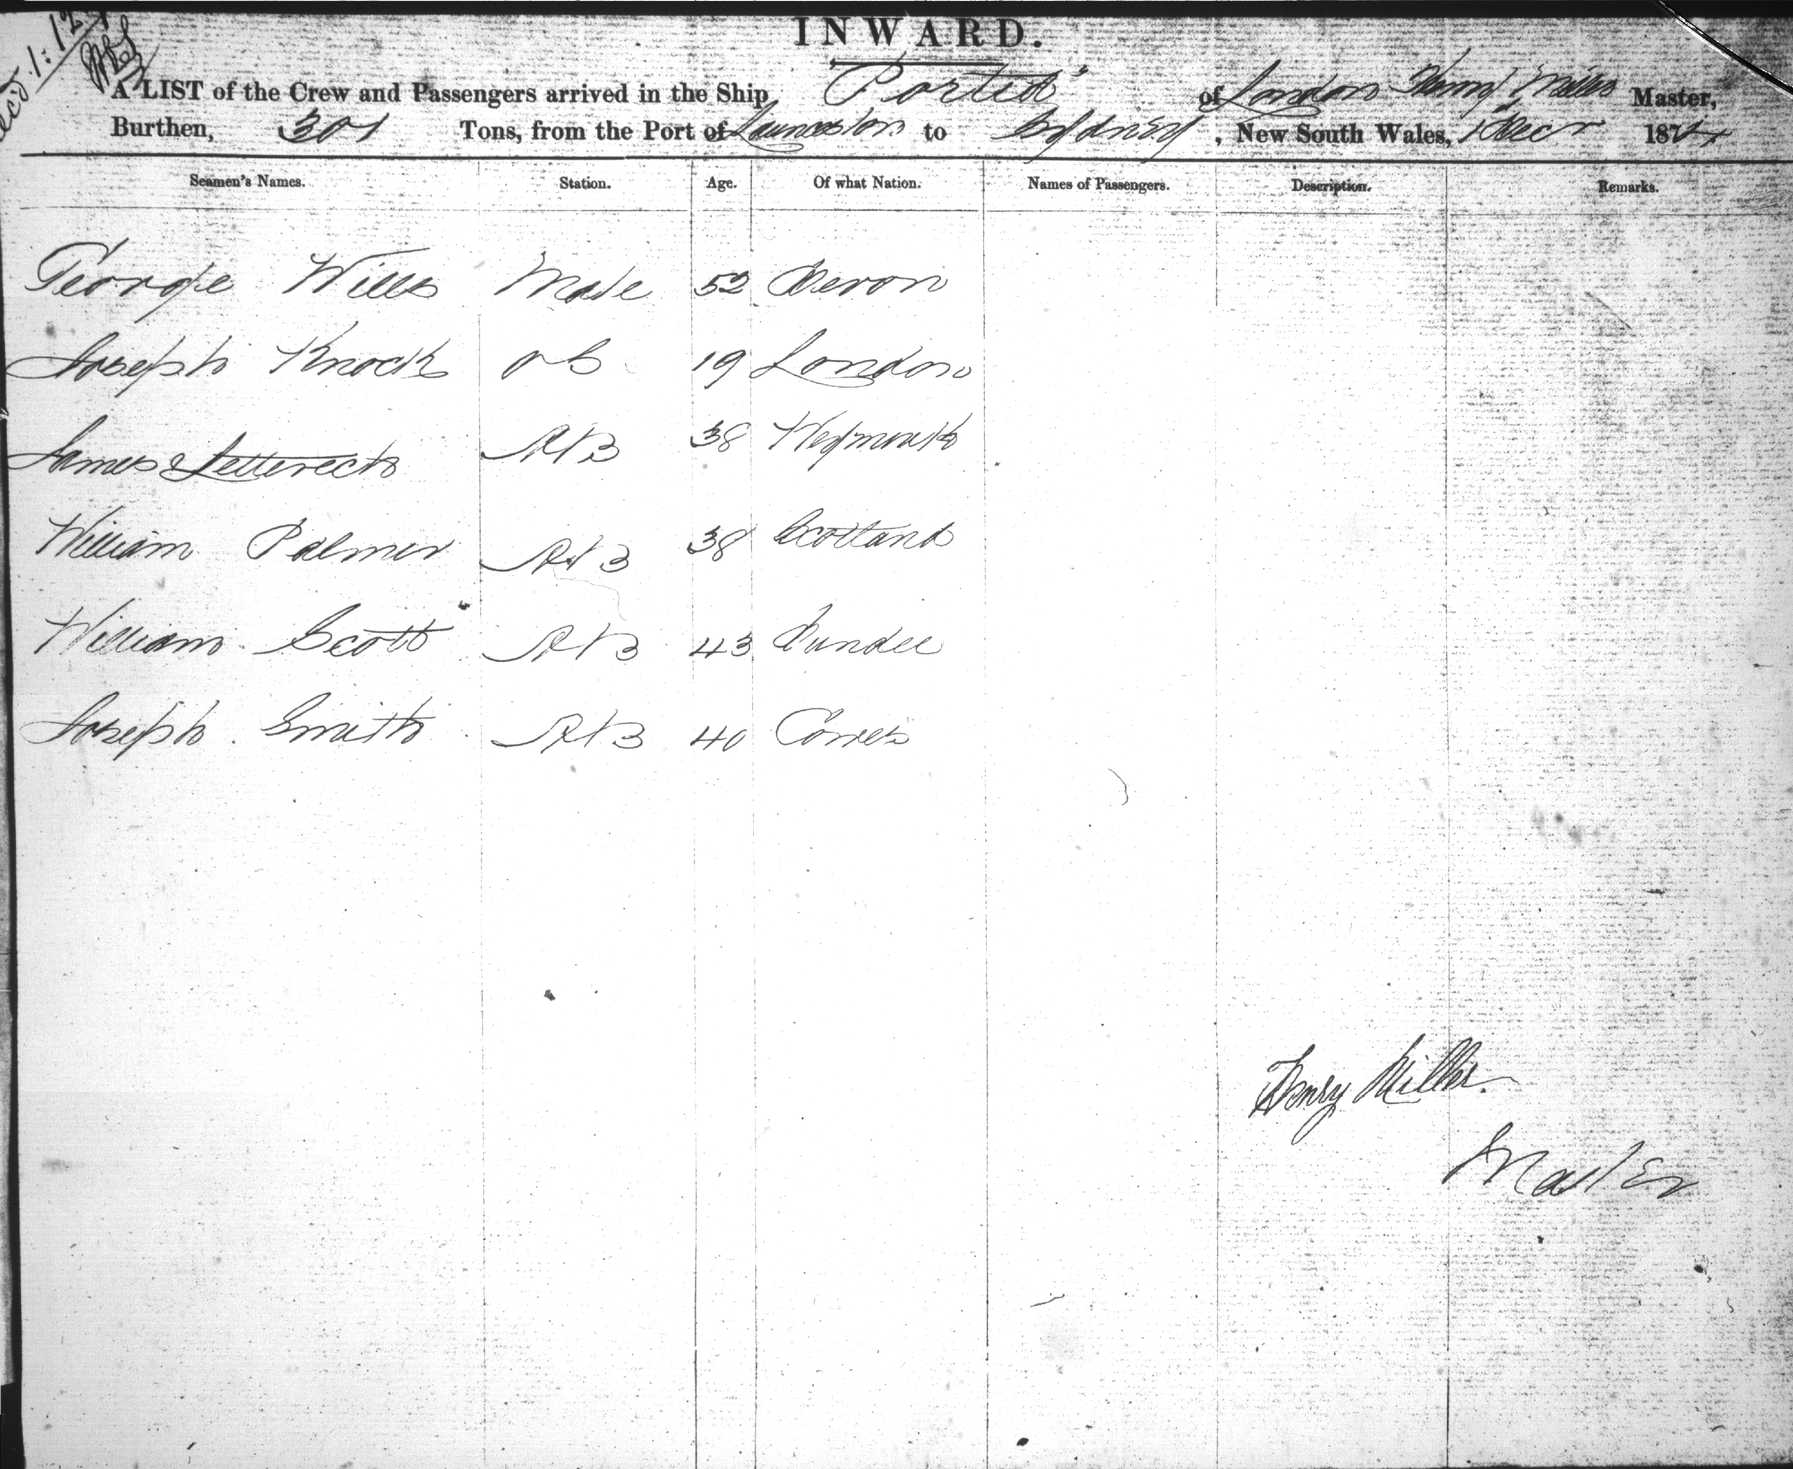 INWARD.
A LIST of the Crew and Passengers arrived in the Ship "Portia" of London Henry Miller Master,
Burthen, 301 Tons, from the Port of Launceston to Sydney, New South Wales, 1 Decr 1874
Seamen's Names. Station. Age. Of what Nation. Names of Passengers. Description. Remarks.
George Wills Mate 52 Devon
Joseph Knock OS 19 London
James AB 38 Weymouth
William Palmer AB 38 Scotland
William Scott AB 43 Dundee
Joseph Smith AB 40 Cowes
Henry Miller.
Master